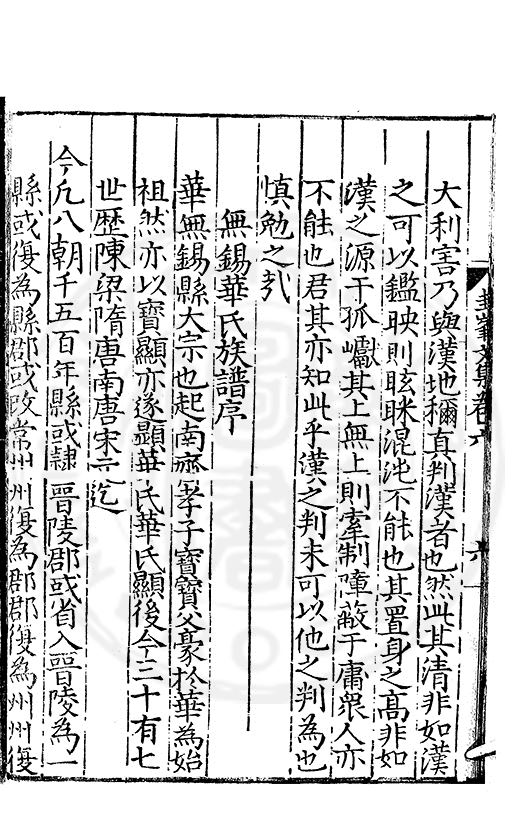 圭峯文集卷六
六
大利害乃與漢地稱真判漢者也然此其清非如漢
之可以鑑映則眩眯混沌不能也其置身之高非如
漢之源于孤巘其上無上則牽制障蔽于庸眾人亦
不能也君其亦知此乎漢之判未可以他之判為也
慎勉之哉
無錫華氏族譜序
華無錫縣大宗也起南齊孝子寶寶父豪於華為始
祖然亦以寶顯亦遂顯華氏華氏顯後今三十有七
世歷陳梁隋唐南唐宋元迄
今凡八朝千五百年縣或隸晉陵郡或省入晉陵為一
縣或復為縣郡或改常州州復為郡郡復為州州復